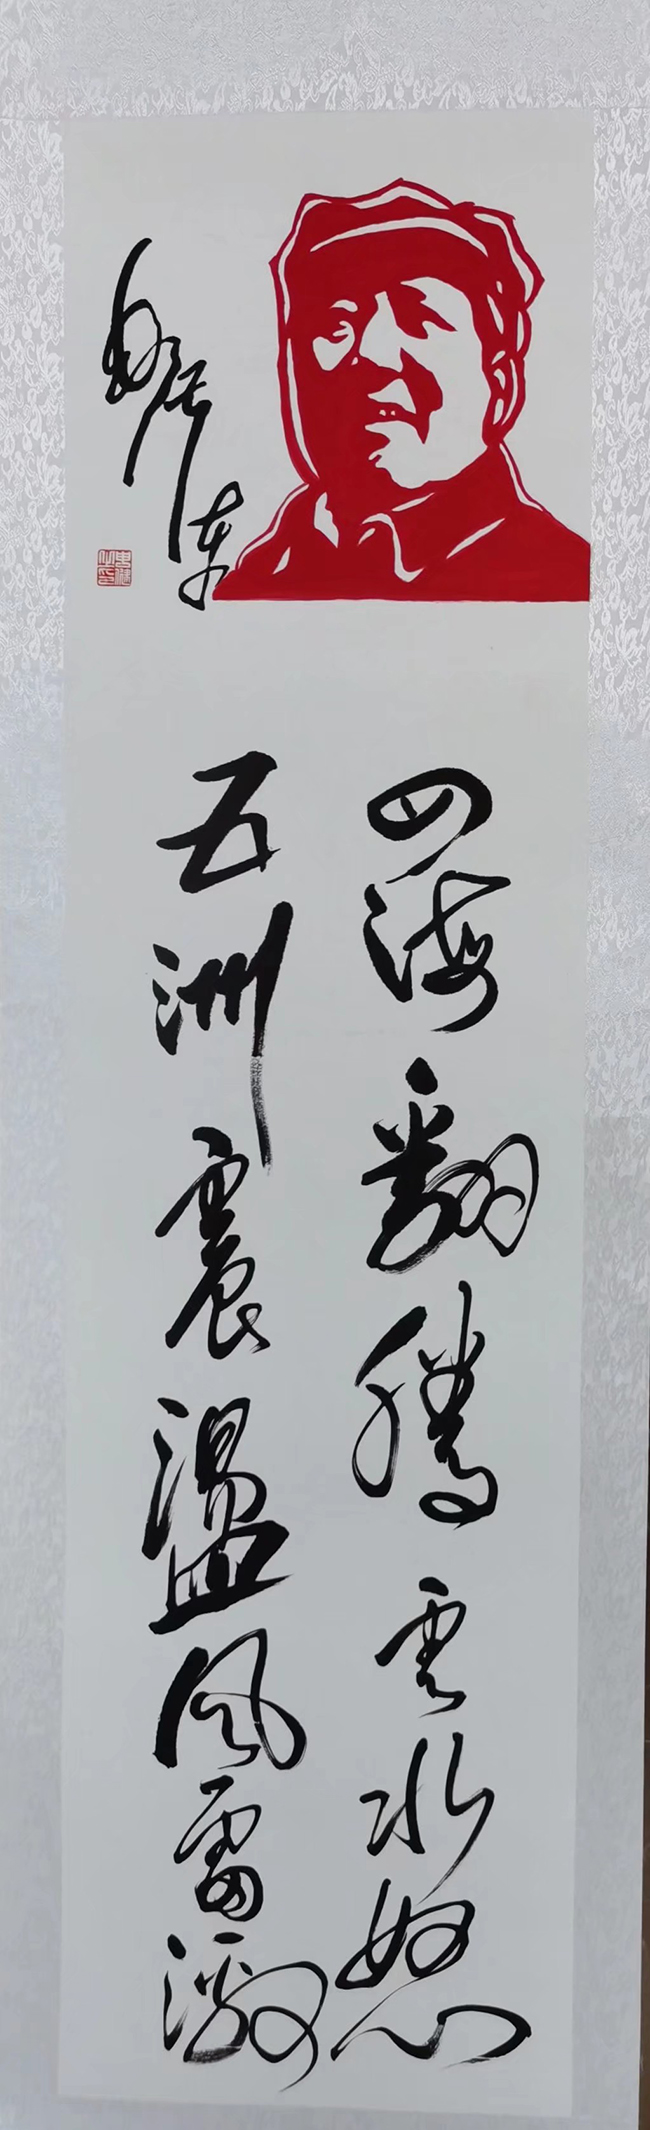 四海翻腾云水怒
五洲震盪风雷激
毛泽东